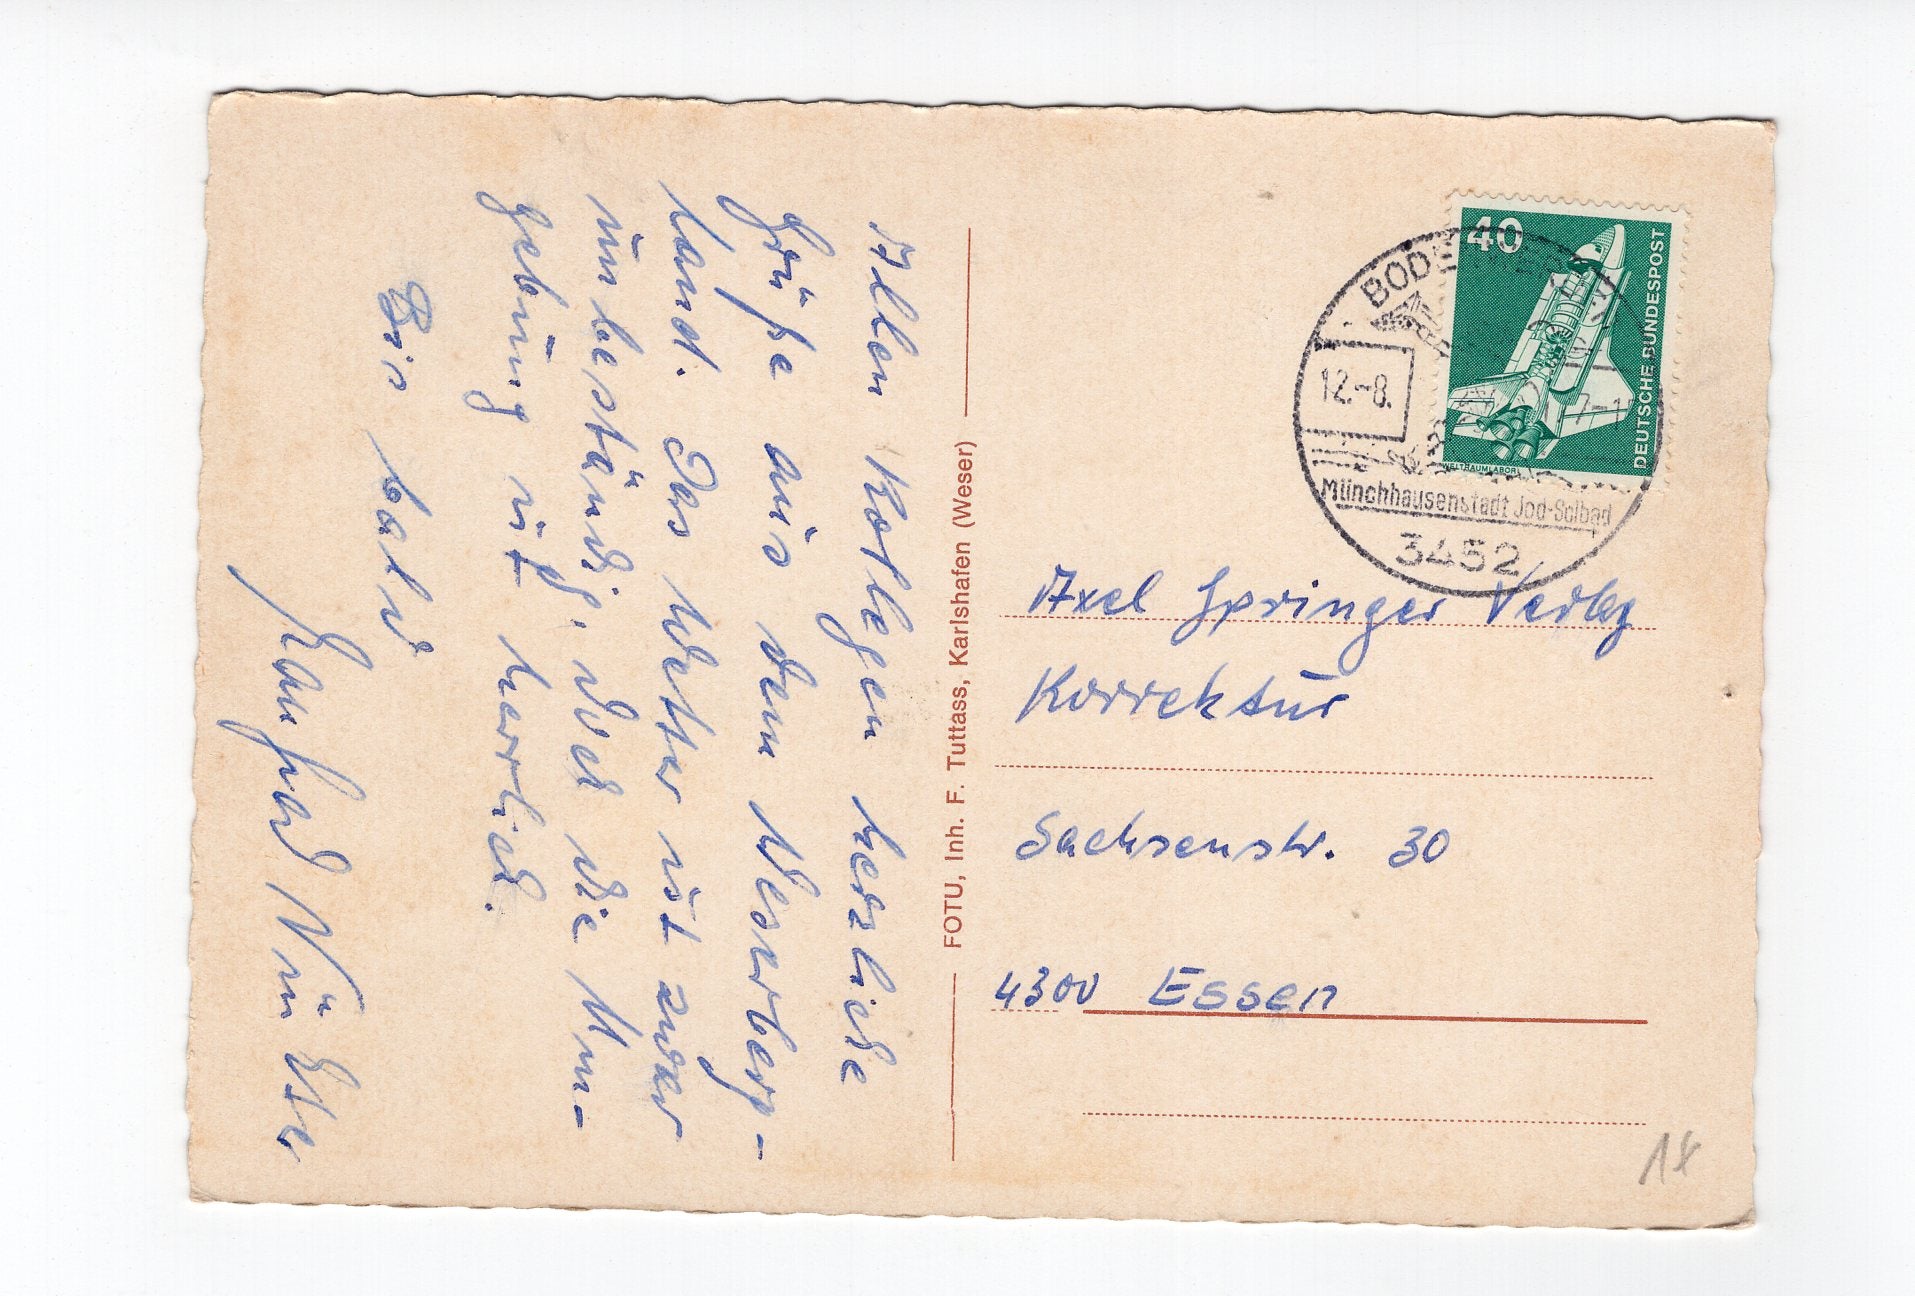 Allen Kollegen herzliche
Grüße aus dem Weserberg-
land. Das Wetter ist zwar
unbeständig, aber die Um-
gebung ist herrlich.
Bis bald
Manfred
FOTU, Inh. F. Tuttass, Karlshafen (Weser)
40
DEUTSCHE BUNDESPOST
WELTRAUMLABOR
12.-8.
Münchhausenstadt Jod-Solbad
3452
Axel Springer Verlag
Korrektur
Sachsenstr. 30
4300 Essen